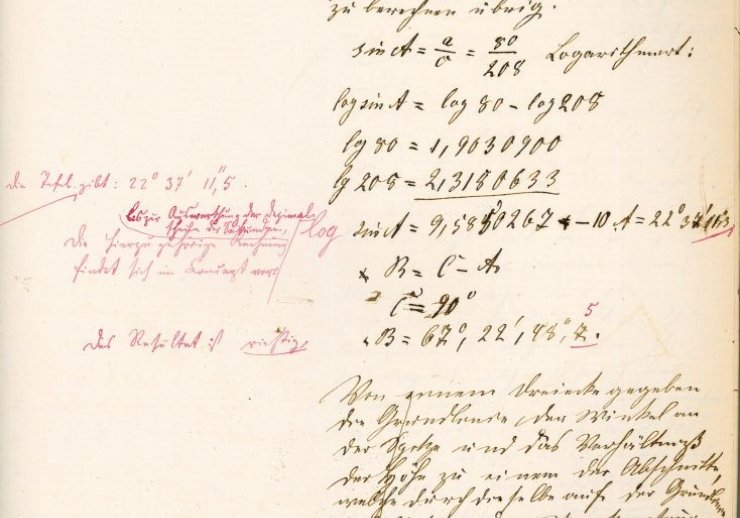 zu berechnen übrig.
sin A = a/c = 80/208 Logarithmirt:
log sin A = log 80 - log 208
lg 80 = 1,9030900
lg 208 = 2,3180633
sin A = 9,5850267 - 10 A = 22° 37' 11",3
B = C - A
C = 90°
B = 67°, 22', 48", 7.
5
Von einem Dreiecke gegeben
die Grundlinie, der Winkel an
der Spitze und das Verhältniß
der Höhe zu einem der Abschnitte,
welche durch dieselbe auf der Grundlinie
die Tafel gibt: 22° 37' 11",5.
bis zur Auswerthung der Dezimal-
theile der Sekunden,
log
Die hierzu gehörige Rechnung
findet sich im Concept vor.
Das Resultat ist richtig.